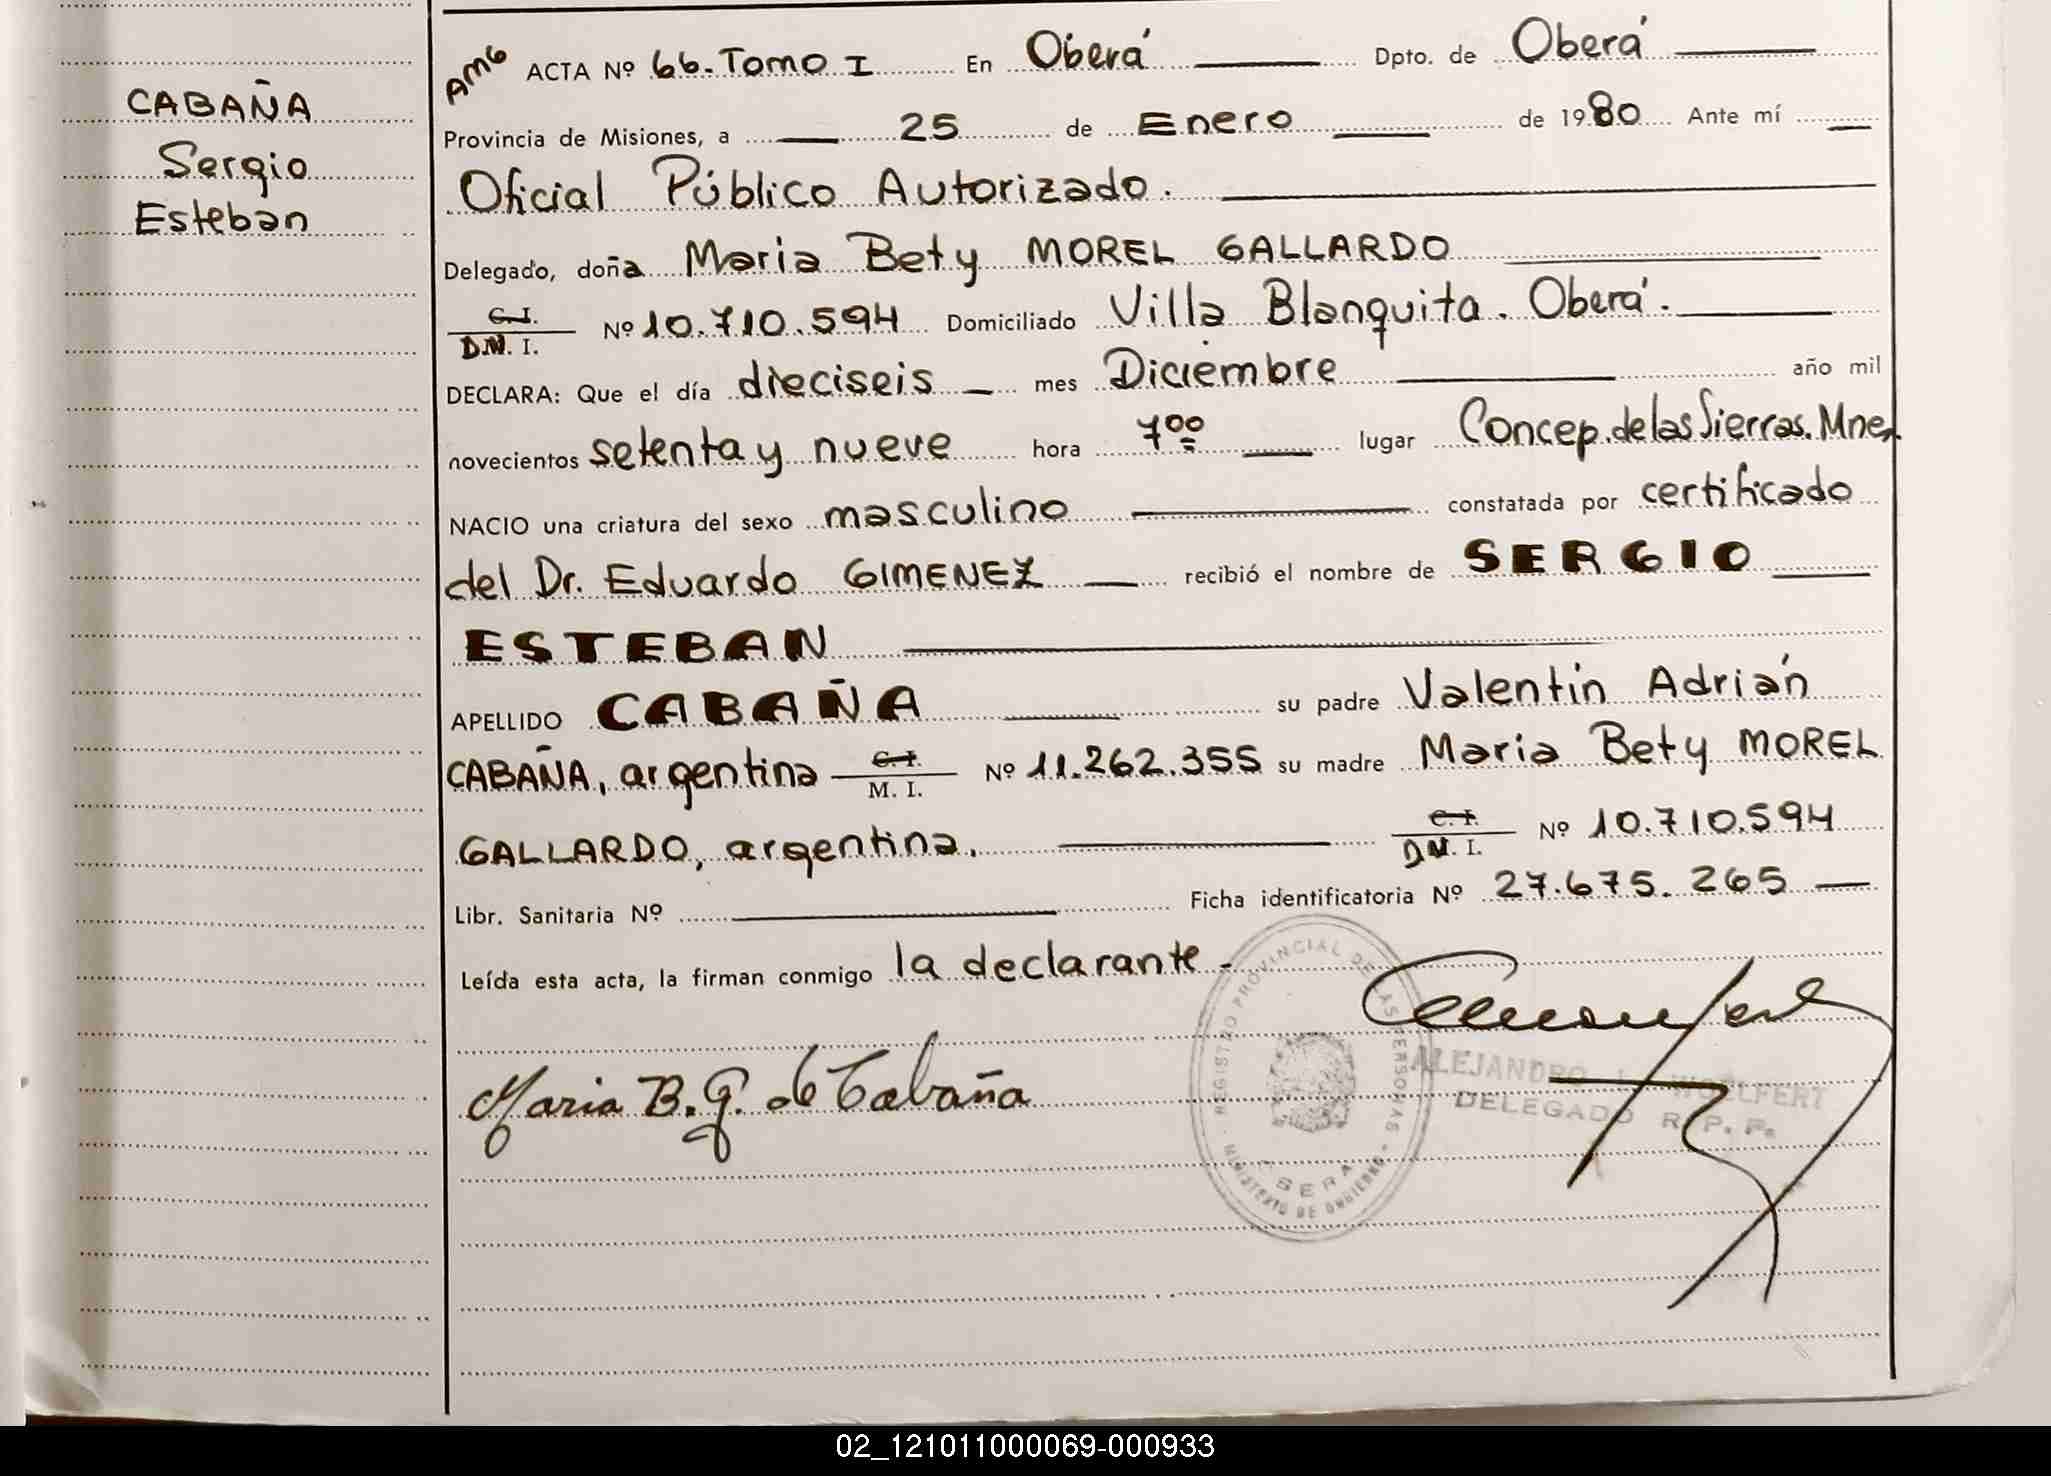 CABAÑA
Sergio
Esteban
AMG ACTA Nº 66. Tomo I En Oberá Dpto. de Oberá
Provincia de Misiones, a 25 de Enero de 1980 Ante mí
Oficial Público Autorizado.
Delegado, doña Maria Bety MOREL GALLARDO
C.I. D.N.I. Nº 10.710.594 Domiciliado Villa Blanquita. Oberá.
DECLARA: Que el día dieciseis mes Diciembre año mil
novecientos setenta y nueve hora 7ºº lugar Concep. de las Sierras. Mnes.
NACIO una criatura del sexo masculino constatada por certificado
del Dr. Eduardo GIMENEZ recibió el nombre de SERGIO
ESTEBAN
APELLIDO CABAÑA su padre Valentin Adrián
CABAÑA, argentina C.I. M. I. Nº 11.262.355 su madre Maria Bety MOREL
GALLARDO, argentina. C.I. D.N.I. Nº 10.710.594
Libr. Sanitaria Nº Ficha identificatoria Nº 27.675.265
Leída esta acta, la firman conmigo la declarante.-
Maria B. G. de Cabaña
REGISTRO PROVINCIAL DE LAS PERSONAS
MINISTERIO DE GOBIERNO
OBERA
ALEJANDRO WOELFERT
DELEGADO R. P. P.
02_121011000069-000933